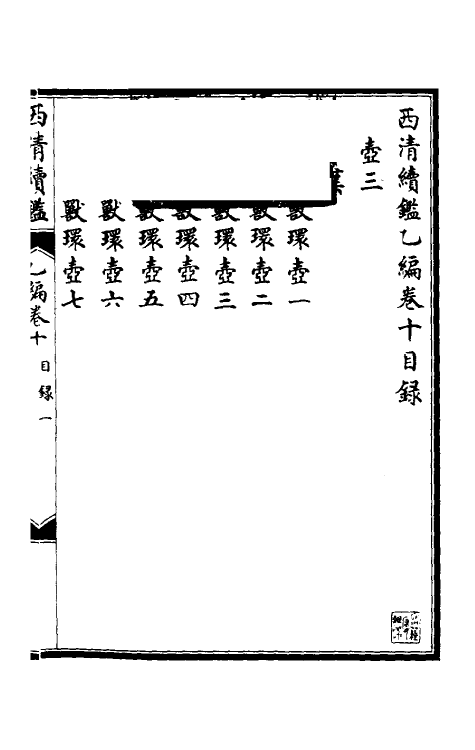 西清續鑑乙編卷十目錄
壺三
獸環壺一
獸環壺二
獸環壺三
獸環壺四
獸環壺五
獸環壺六
獸環壺七
西清續鑑
乙編卷十
目錄一